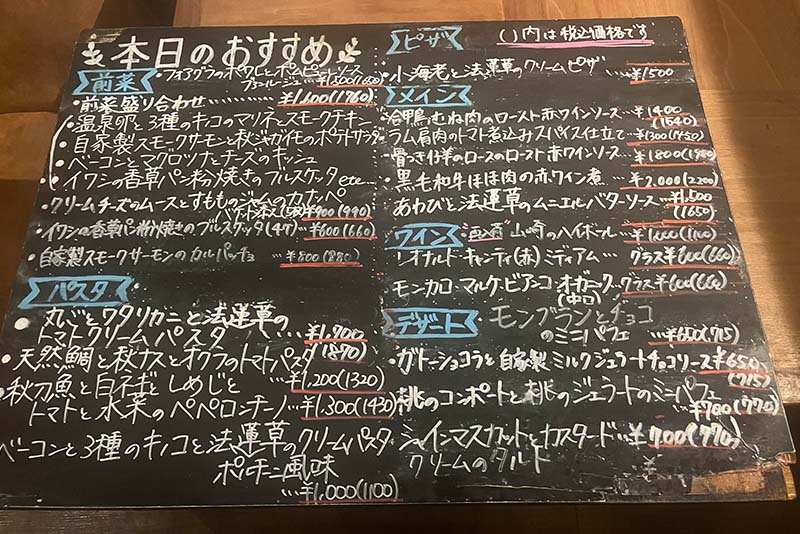 本日のおすすめ
前菜
・フォアグラのポワレとポムピューレ
・前菜盛り合わせ…¥1,600(1760)
・温泉卵と3種のキノコのマリネとスモークチキン
・自家製スモークサーモンと秋ジャガイモのポテトサラダ
・ベーコンとマクロツナとチーズのキッシュ
・イワシの香草パン粉焼きのブルスケッタ etc…
・クリームチーズのムースとすもものジャムのカナッペ
バゲット添え ¥900(990)
・イワシの香草パン粉焼きのブルスケッタ(4ケ) …¥600(660)
・自家製スモークサーモンのカルパッチョ …¥800(880)
パスタ
・丸ごとワタリカニと法蓮草の
トマトクリームパスタ …¥1,700
(1870)
・天然鯛と秋ナスとオクラのトマトパスタ
…¥1,200(1320)
・秋刀魚と白ネギとしめじと
トマトと水菜のペペロンチーノ…¥1,300(1430)
ベーコンと3種のキノコと法蓮草のクリームパスタ
ポルチーニ風味
…¥1,000(1100)
ピザ
( )内は税込価格です
・小海老と法蓮草のクリームピザ …¥1500
メイン
・冷鴨むね肉のロースト赤ワインソース…¥1400
(1540)
・ラム肩肉のトマト煮込みスパイス仕立て…¥1300(1430)
・骨つき仔羊のロースのロースト赤ワインソース…¥1800(1980)
・黒毛和牛ほほ肉の赤ワイン煮 …¥2,000(2200)
・あわびと法蓮草のムニエルバターソース…¥1,500
(1650)
ワイン
山崎のハイボール…¥1,000(1100)
・リオナルド・キャンティ(赤)ミディアム グラス¥600(660)
モンカロ マルケ・ビアンコ オーガニック グラス¥600(660)
(中口)
デザート
モンブランとチョコ
のミニパフェ …¥650(715)
・ガトーショコラと自家製ミルクジェラートチョコソース ¥650
(715)
・桃のコンポートと桃のジェラートのミニパフェ
…¥700(770)
シャインマスカットとカスタード…¥700(770)
クリームのタルト